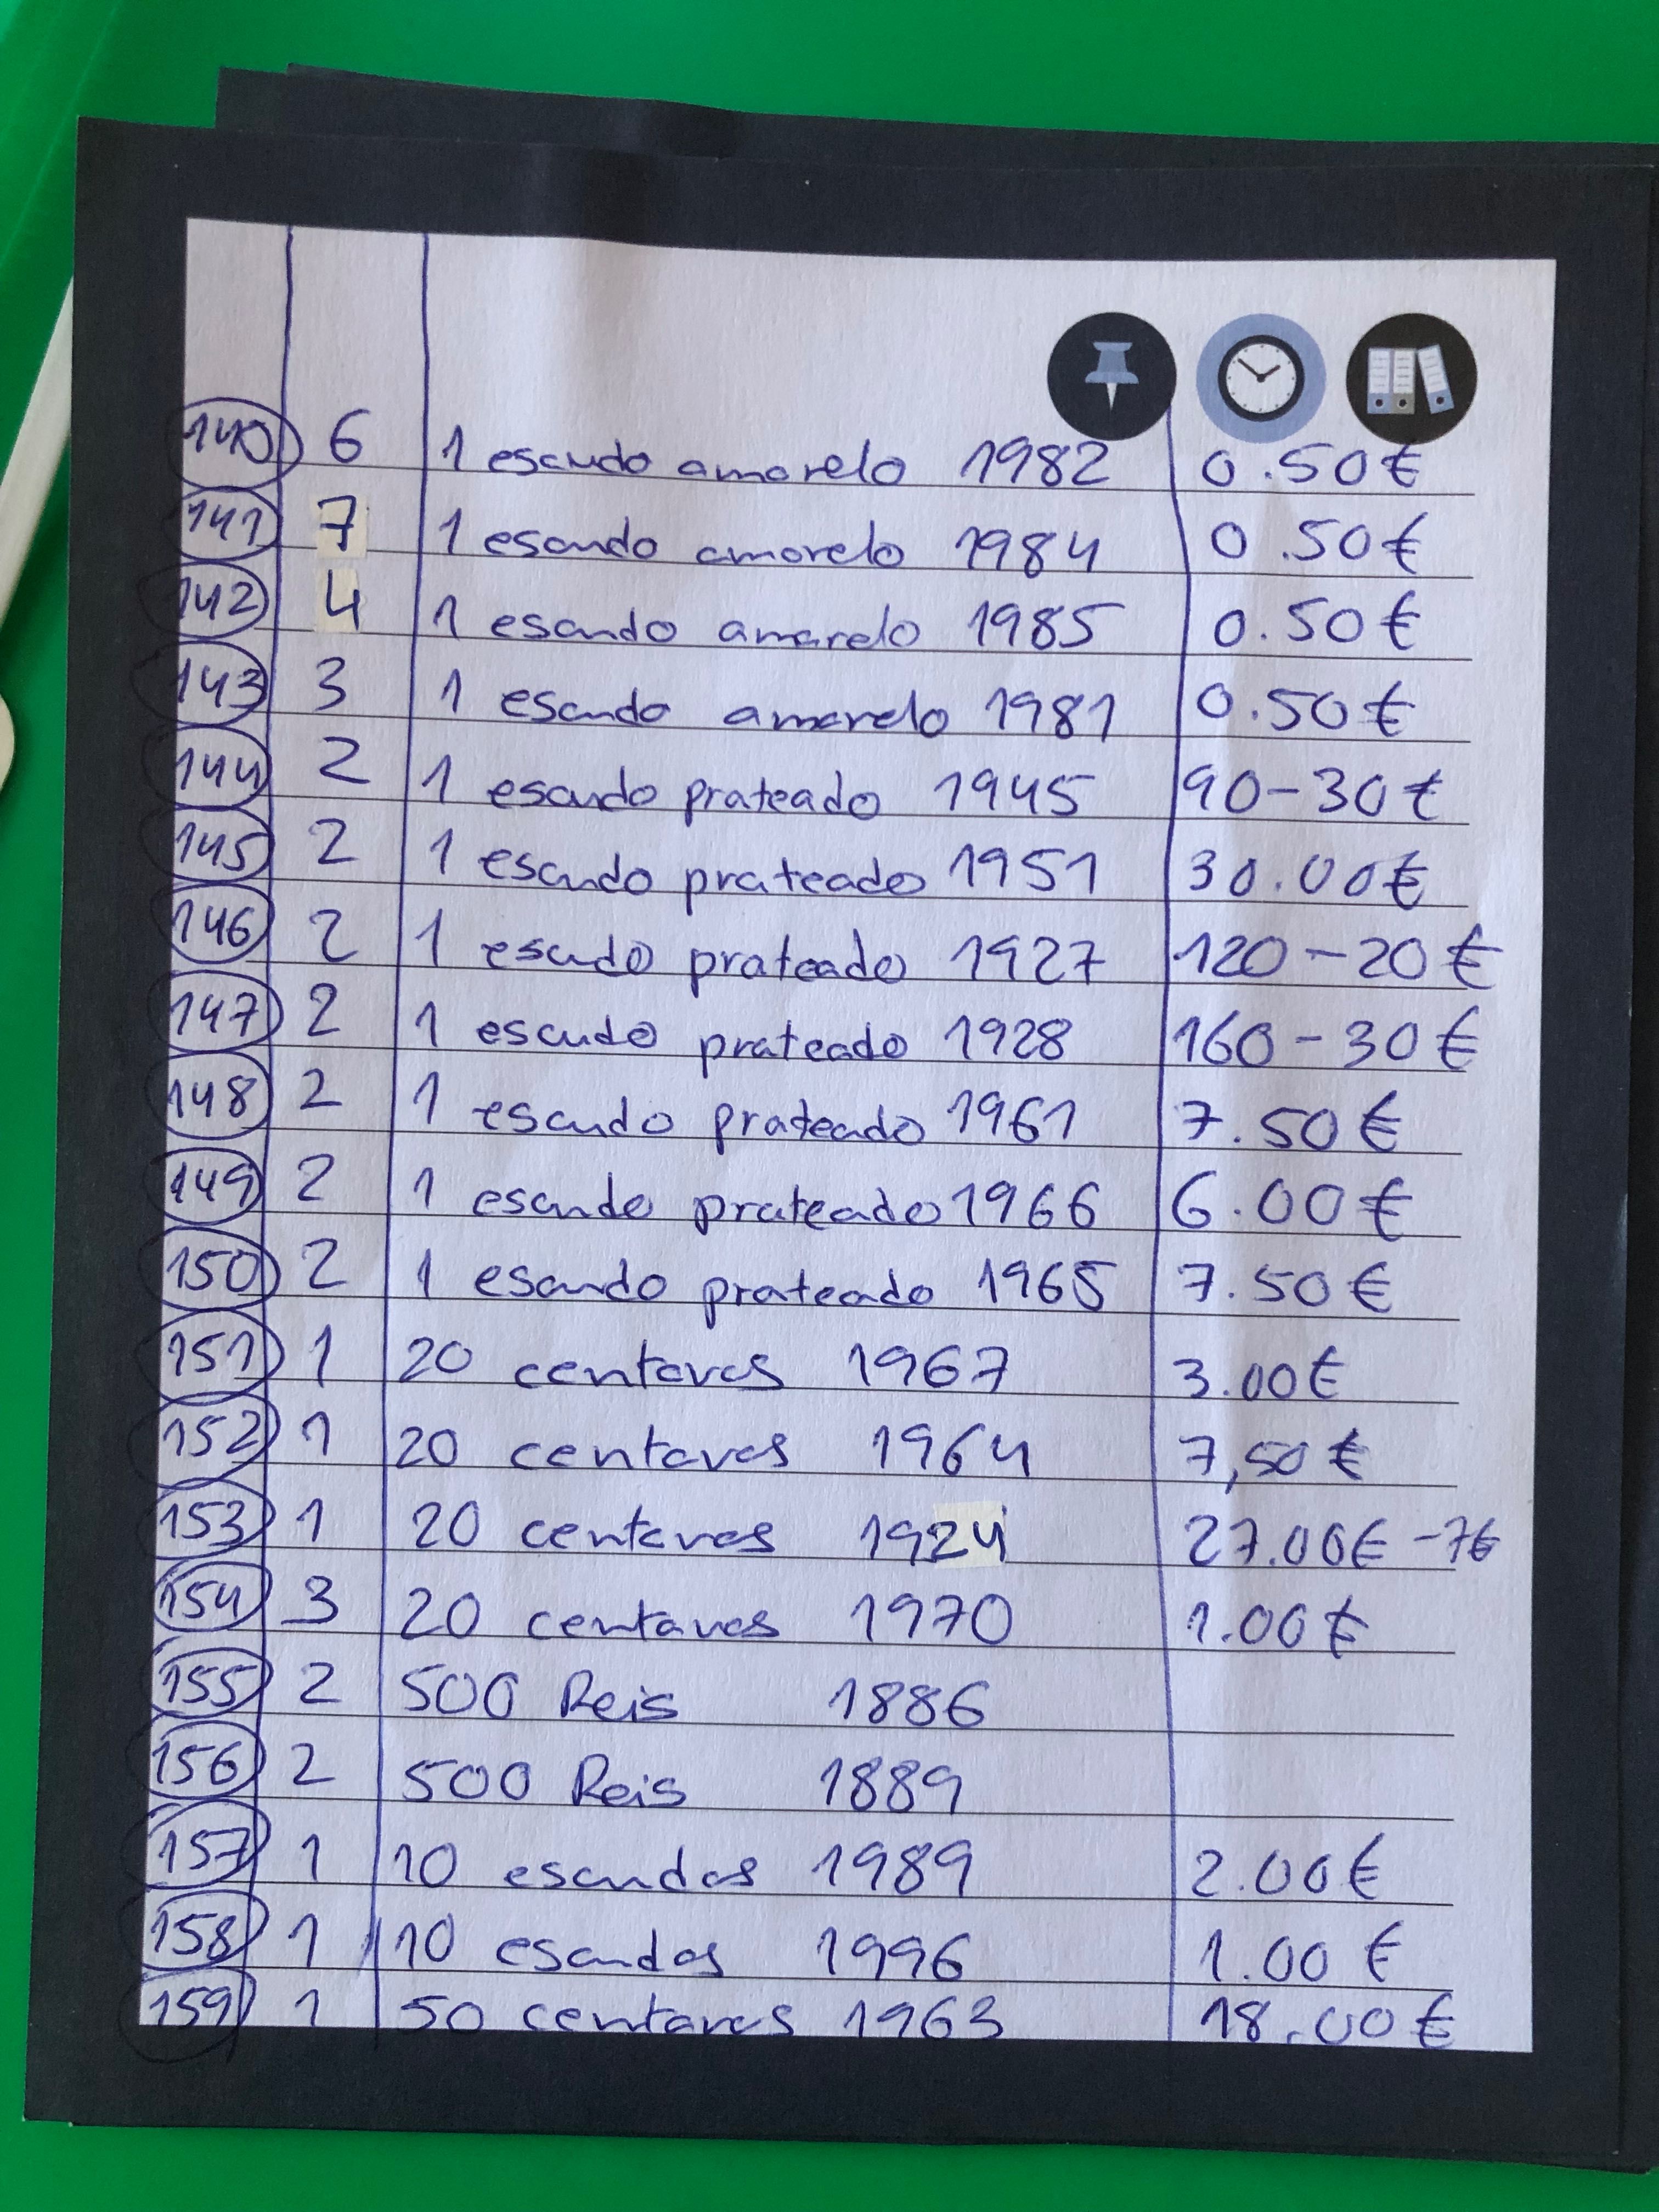 140 6 1 escudo amarelo 1982 0.50€
141 7 1 escudo amarelo 1984 0.50€
142 4 1 escudo amarelo 1985 0.50€
143 3 1 escudo amarelo 1981 0.50€
144 2 1 escudo prateado 1945 90-30€
145 2 1 escudo prateado 1951 30.00€
146 2 1 escudo prateado 1927 120-20€
147 2 1 escudo prateado 1928 160-30€
148 2 1 escudo prateado 1961 7.50€
149 2 1 escudo prateado 1966 6.00€
150 2 1 escudo prateado 1965 7.50€
151 1 20 centavos 1967 3.00€
152 1 20 centavos 1964 7,50€
153 1 20 centavos 1924 27.00€ -7€
154 3 20 centavos 1970 1.00€
155 2 500 Reis 1886
156 2 500 Reis 1889
157 1 10 escudos 1989 2.00€
158 1 10 escudos 1996 1.00€
159 1 50 centavos 1963 18.00€